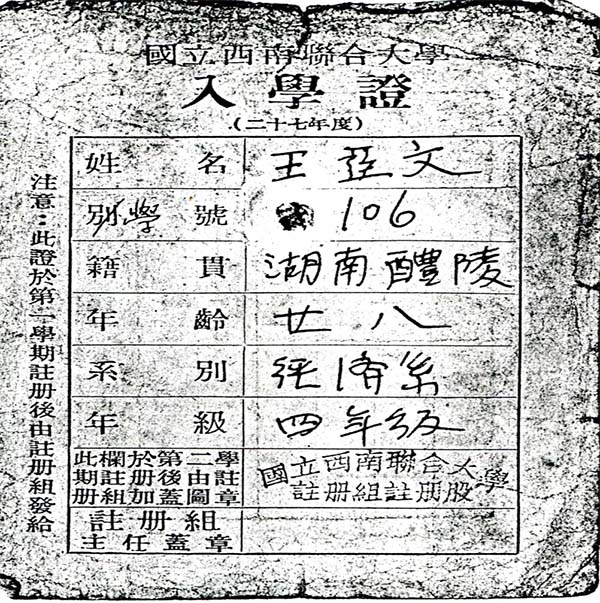 國立西南聯合大學
入學證
(二十七年度)
姓名 王亞文
別學號 106
籍貫 湖南醴陵
年齡 廿八
系別 經濟系
年級 四年級
此欄於第二學
期註册後由註
册組加蓋圖章
國立西南聯合大學
註册組註册股
註册組
主任蓋章
注意:此證於第一學期註册後由註册組發給